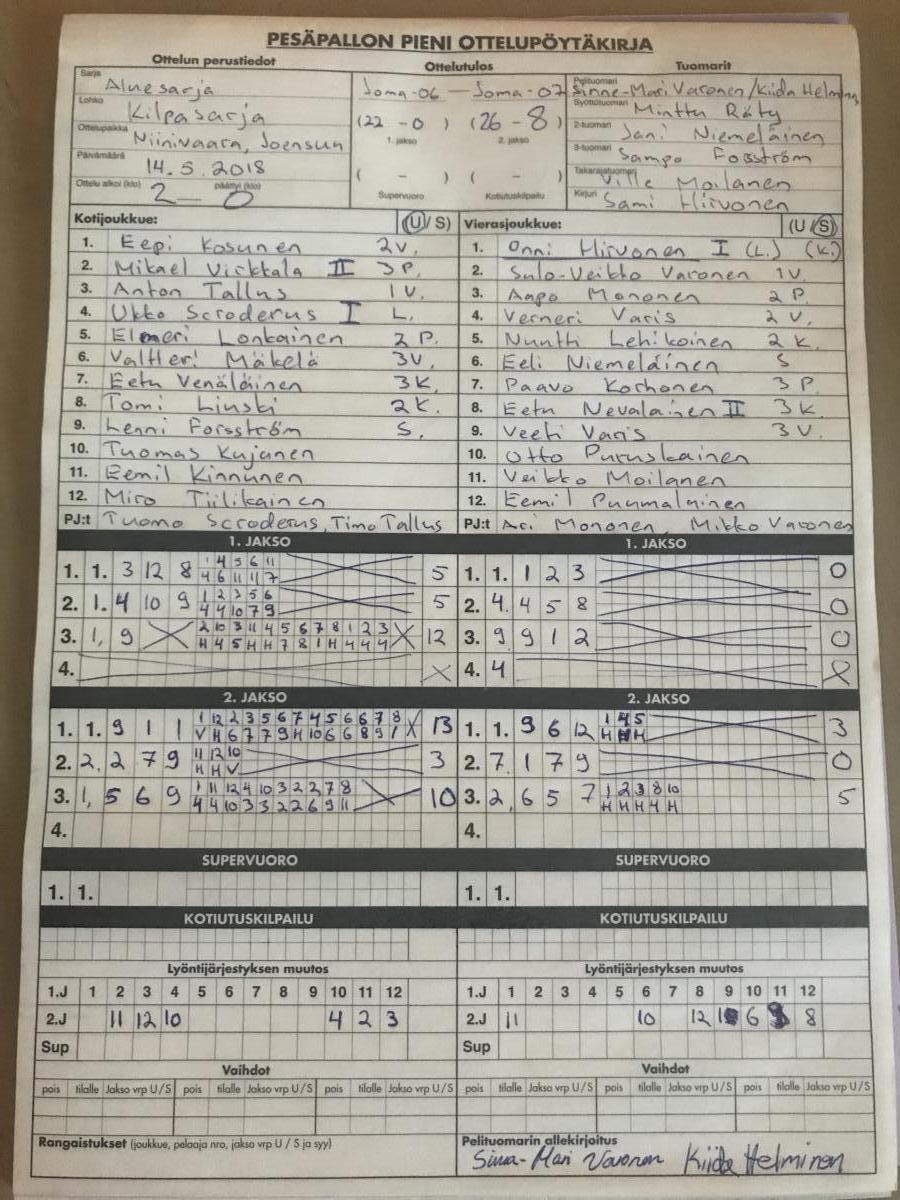 PESÄPALLON PIENI OTTELUPÖYTÄKIRJA
Ottelun perustiedot Ottelutulos Tuomarit
Sarja Aluesarja Joma-06 — Joma-07 Pelituomari Sinne-Mari Varonen/Kiida Helminen
Lohko Kilpasarja (22 - 0) (26 - 8) Syöttötuomari Minttu Räty
Ottelupaikka Niinivaara, Joensuu 1. jakso 2. jakso 2-tuomari Jani Niemeläinen
Päivämäärä 14.5.2018 3-tuomari Sampo Fosström
Ottelu alkoi (klo) päättyi (klo) 2 — 0 ( - ) ( - ) Takarajatuomari Ville Moilanen
Supervuoro Kotiutuskilpailu Kirjuri Sami Hirvonen
Kotijoukkue: (U/S) Vierasjoukkue: (U/S)
1. Eepi Kosunen 2V. 1. Onni Hirvonen I (L.) (K.)
2. Mikael Virkkala II 3P. 2. Sulo-Veikko Varonen 1V.
3. Anton Tallus 1V. 3. Aapo Mononen 2P.
4. Ukko Scroderus I L. 4. Verneri Varis 2V.
5. Elmeri Lonkainen 2P. 5. Nuutti Lehikoinen 2K.
6. Valtteri Mäkelä 3V. 6. Eeli Niemeläinen S
7. Eetu Venäläinen 3K. 7. Paavo Korhonen 3P.
8. Tomi Linski 2K. 8. Eetu Nevalainen II 3K.
9. Lenni Forsström S. 9. Veeti Varis 3V.
10. Tuomas Kujanen 10. Otto Puruskainen
11. Eemil Kinnunen 11. Veikko Moilanen
12. Miro Tiilikainen 12. Eemil Puumalainen
PJ:t Tuomo Scroderus, Timo Tallus PJ:t Ari Mononen, Mikko Varonen
1. JAKSO 1. JAKSO
1. 1. 3 12 8 1 4 5 6 11 5 1. 1. 1 2 3 0
4 6 11 11 7
2. 1. 4 10 9 1 2 3 5 6 5 2. 4. 4 5 8 0
4 4 10 7 9
3. 1, 9 2 10 3 11 4 5 6 7 8 1 2 3 12 3. 9 9 1 2 0
H 4 5 H H 7 8 1 H 4 4 4
4. 4. 4
2. JAKSO 2. JAKSO
1. 1. 9 1 1 1 12 2 3 5 6 7 4 5 6 6 7 8 13 1. 1. 9 6 12 1 4 5 3
V H 6 7 7 9 H 10 6 6 8 9 1 H H H
2. 2. 2 7 9 11 12 10 3 2. 7. 1 7 9 0
H H V
3. 1, 5 6 9 1 11 12 4 10 3 2 2 7 8 10 3. 2, 6 5 7 1 2 3 8 10 5
4 4 10 3 3 2 2 6 9 11 H H H H H
4. 4.
SUPERVUORO SUPERVUORO
1. 1. 1. 1.
KOTIUTUSKILPAILU KOTIUTUSKILPAILU
Lyöntijärjestyksen muutos Lyöntijärjestyksen muutos
1.J 1 2 3 4 5 6 7 8 9 10 11 12 1.J 1 2 3 4 5 6 7 8 9 10 11 12
2.J 11 12 10 4 2 3 2.J 11 10 12 6 8
Sup Sup
Vaihdot Vaihdot
pois tilalle Jakso vrp U/S pois tilalle Jakso vrp U/S pois tilalle Jakso vrp U/S pois tilalle Jakso vrp U/S pois tilalle Jakso vrp U/S pois tilalle Jakso vrp U/S
Rangaistukset (joukkue, pelaaja nro, jakso vrp U / S ja syy) Pelituomarin allekirjoitus
Sinna-Mari Varonen Kiida Helminen